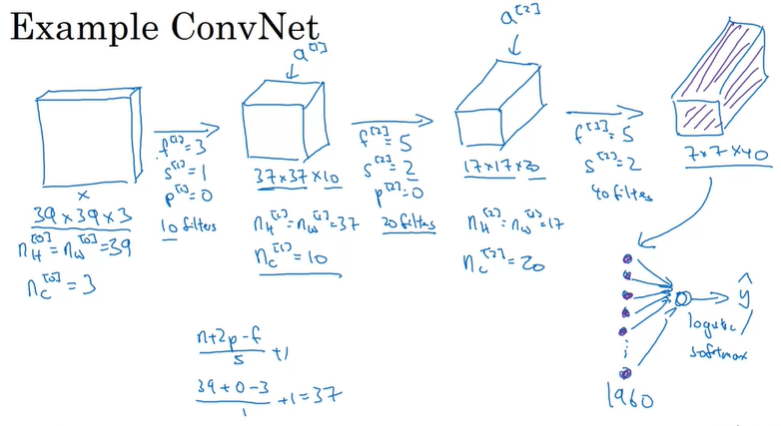 Example ConvNet
x
39 x 39 x 3
n_H^[0] = n_W^[0] = 39
n_C^[0] = 3
f^[1] = 3
s^[1] = 1
p^[1] = 0
10 filters
a^[1]
37 x 37 x 10
n_H^[1] = n_W^[1] = 37
n_C^[1] = 10
f^[2] = 5
s^[2] = 2
p^[2] = 0
20 filters
a^[2]
17 x 17 x 20
n_H^[2] = n_W^[2] = 17
n_C^[2] = 20
f^[3] = 5
s^[3] = 2
40 filters
7 x 7 x 40
ŷ
logistic/
softmax
1960
(n+2p-f)/s +1
(39+0-3)/1 +1 = 37